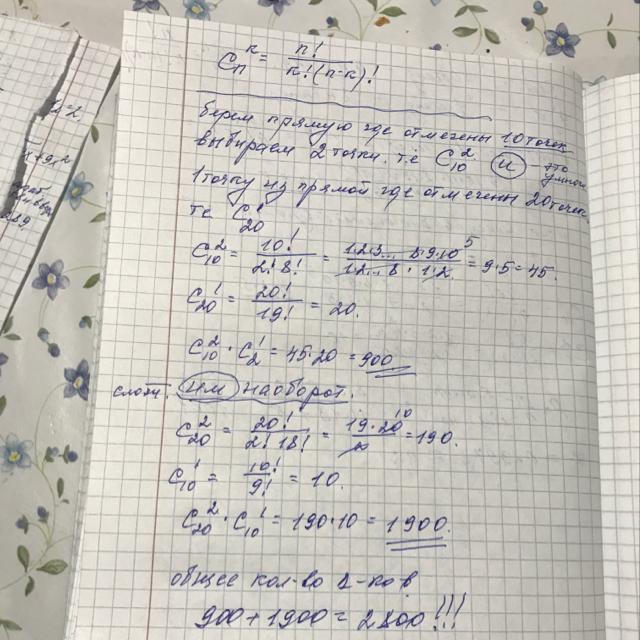 C_n^k = n! / k!(n-k)!
берем прямую где отмечены 10 точек
выбираем 2 точки. т.е C_10^2 (и) это умнож
1 точку из прямой где отмечены 20 точек
те C_20^1
C_10^2 = 10! / 2! 8! = 1 2 3 ... 8 9 10 5 / 1 2 ... 8 · 1 · 2 = 9·5 = 45.
C_20^1 = 20! / 19! = 20.
C_10^2 · C_2^1 = 45·20 = 900
слож. или наоборот.
C_20^2 = 20! / 2! 18! = 19·20 10 / 2 = 190.
C_10^1 = 10! / 9! = 10.
C_20^2 · C_10^1 = 190·10 = 1900.
общее кол-во Δ-ков
900 + 1900 = 2800!!!